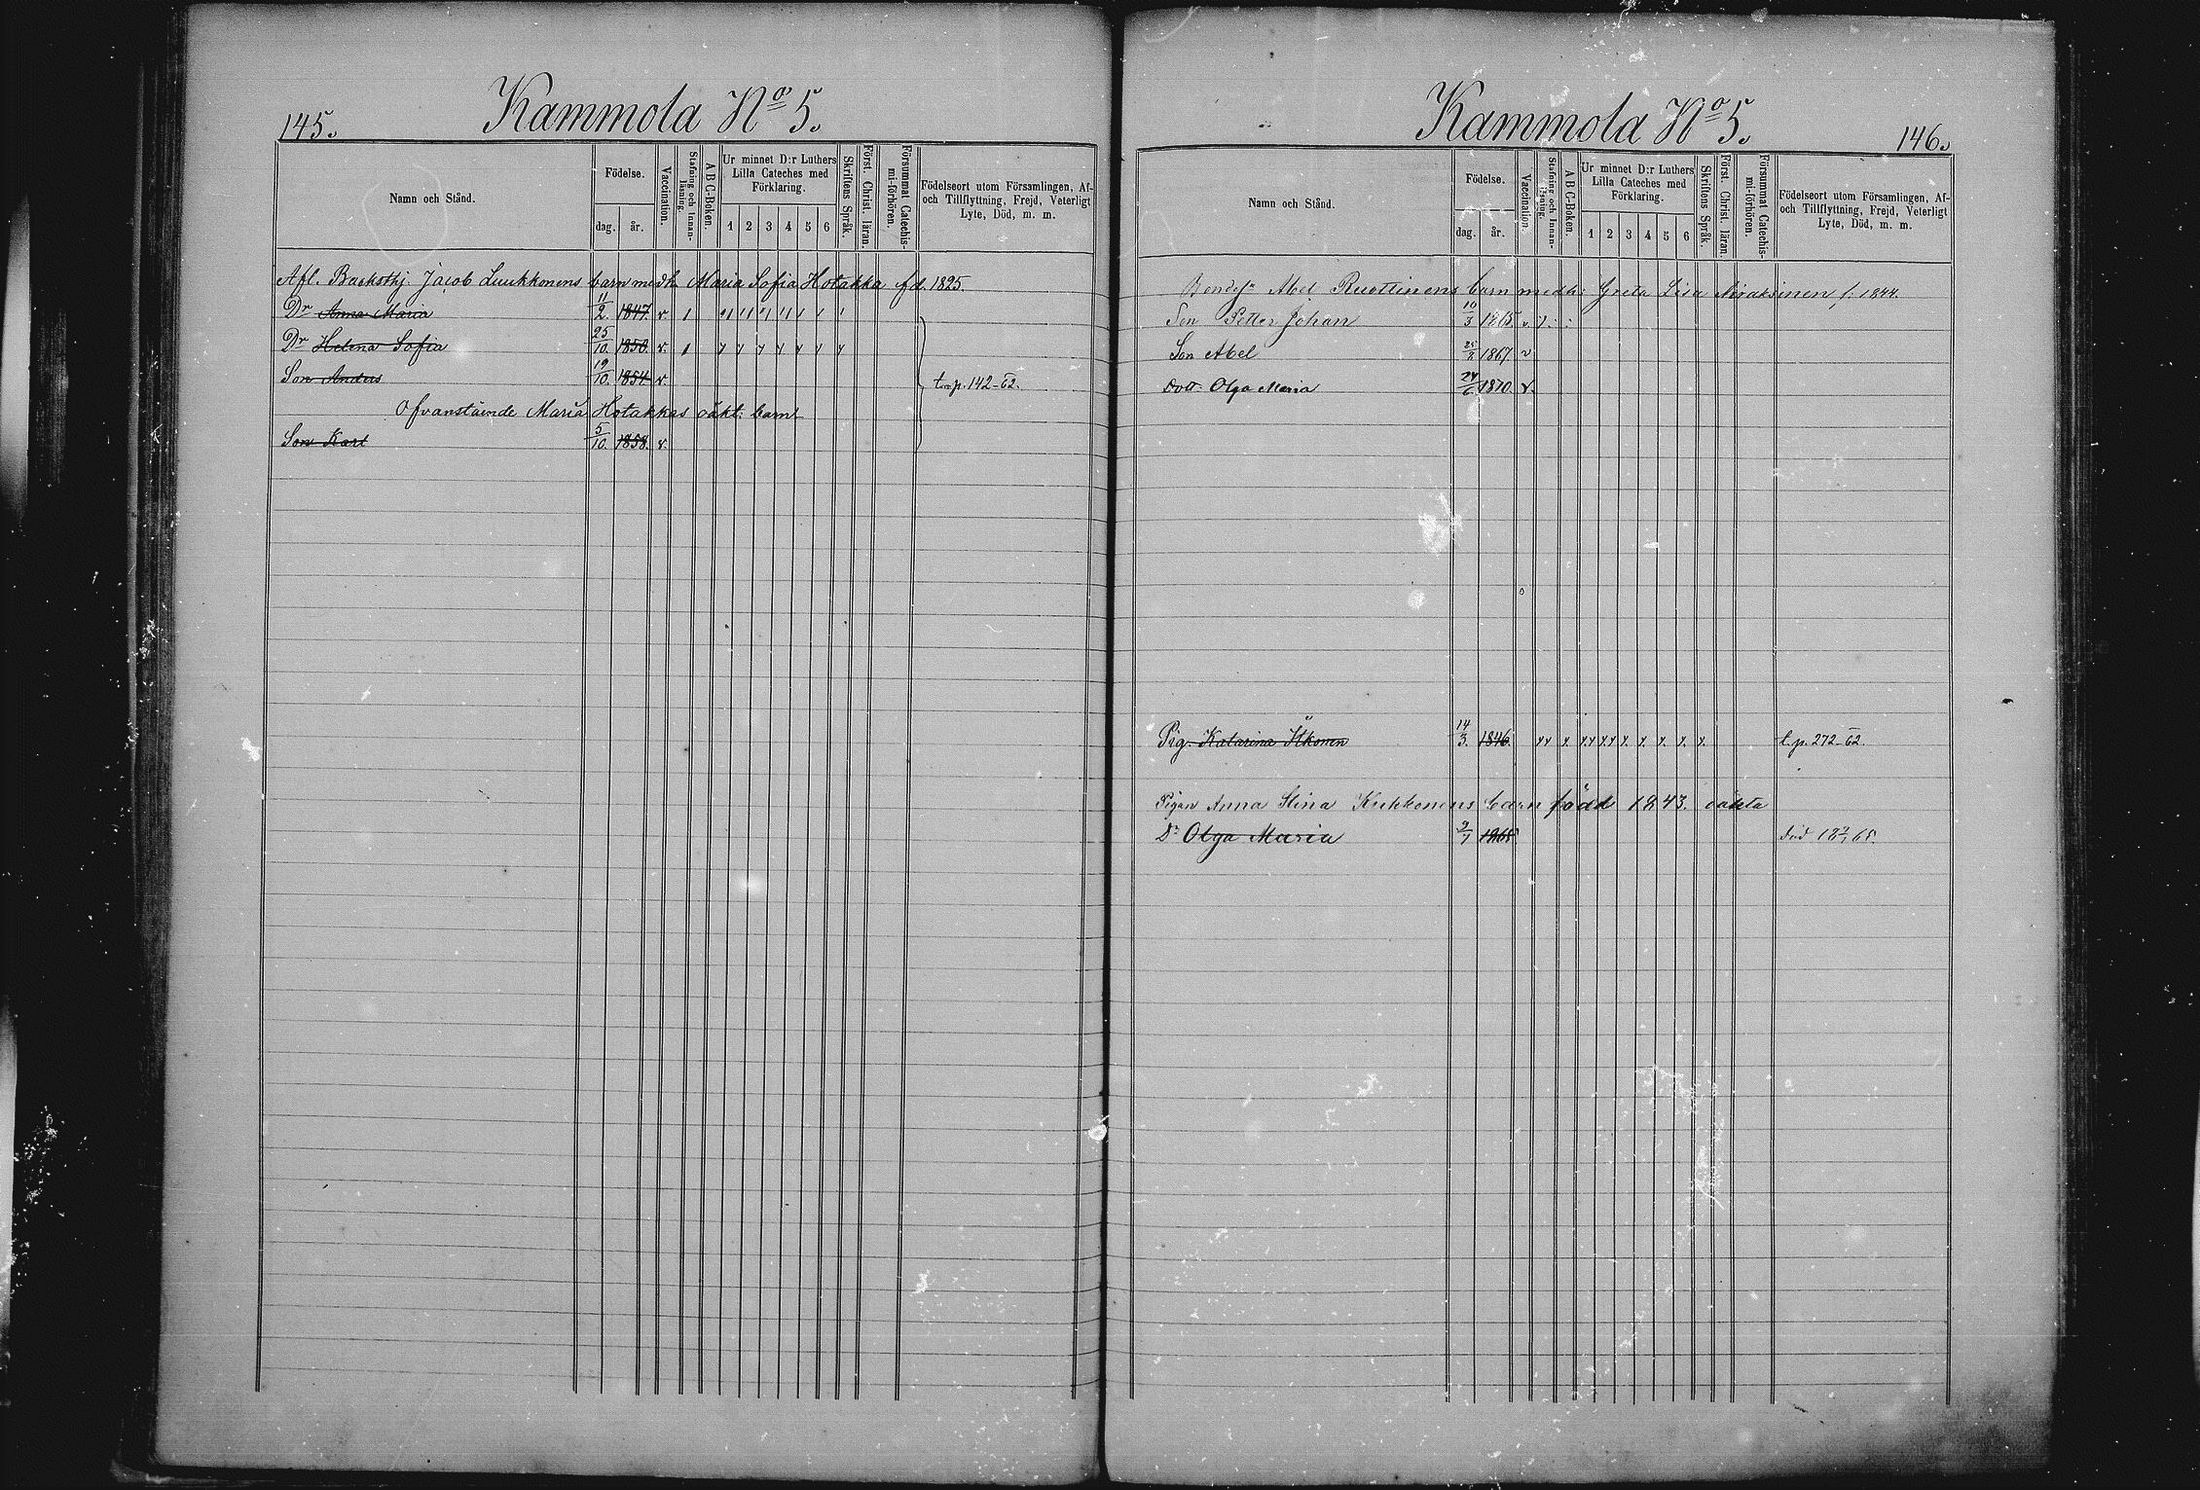 145.
Kammola No 5.
Namn och Stånd.
Födelse.
dag.
år.
Vaccination.
Stafning och Innanläsning.
A B C-Boken.
Ur minnet D:r Luthers Lilla Cateches med Förklaring.
1 2 3 4 5 6
Skriftens Språk.
Först. Christ. läran.
Försummat Catechismi-förhören.
Födelseort utom Församlingen, Af- och Tillflyttning, Frejd, Veterligt Lyte, Död, m. m.
Afl. Backsthj. Jacob Luukkonens barn med h. Maria Sofia Hotakka fd. 1825.
Dr Anna Maria 11/2. 1847. v. 1
Dr Helena Sofia 25/10. 1850. v. 1
Son Anders 19/10. 1854. v. t. p. 142-62.
Ofvanstående Maria Hotakkas oäkt: barn
Son Karl 5/10. 1858. v.
Kammola No 5.
146.
Namn och Stånd.
Födelse.
dag.
år.
Vaccination.
Stafning och Innanläsning.
A B C-Boken.
Ur minnet D:r Luthers Lilla Cateches med Förklaring.
1 2 3 4 5 6
Skriftens Språk.
Först. Christ. läran.
Försummat Catechismi-förhören.
Födelseort utom Församlingen, Af- och Tillflyttning, Frejd, Veterligt Lyte, Död, m. m.
Abel Ruottinens barn med h: Greta Lisa f: 1844.
Son Petter Johan 10/3 1865. v.
Son Abel 1867. v
Dott. Olga Maria 24/6 1870. v.
Pig. Katarina Itkonen 14/3. 1846. t. p. 272-62.
Pigan Anna Stina Kukkonens barn född 1843. oäkta
Dr Olga Maria 9/7 1865 Död